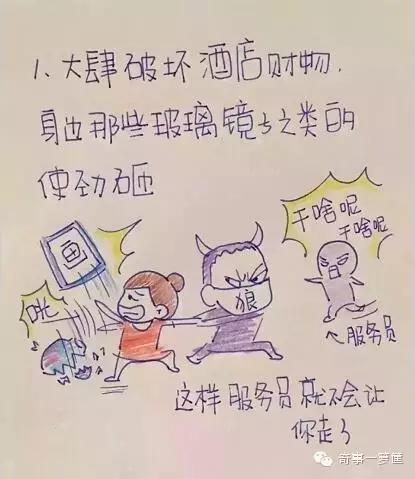 1、大肆破坏酒店财物,
身边那些玻璃镜子之类的
使劲砸
画
咣
狼
干啥呢
干啥呢
服务员
这样服务员就不会让
你走了
奇事一箩筐